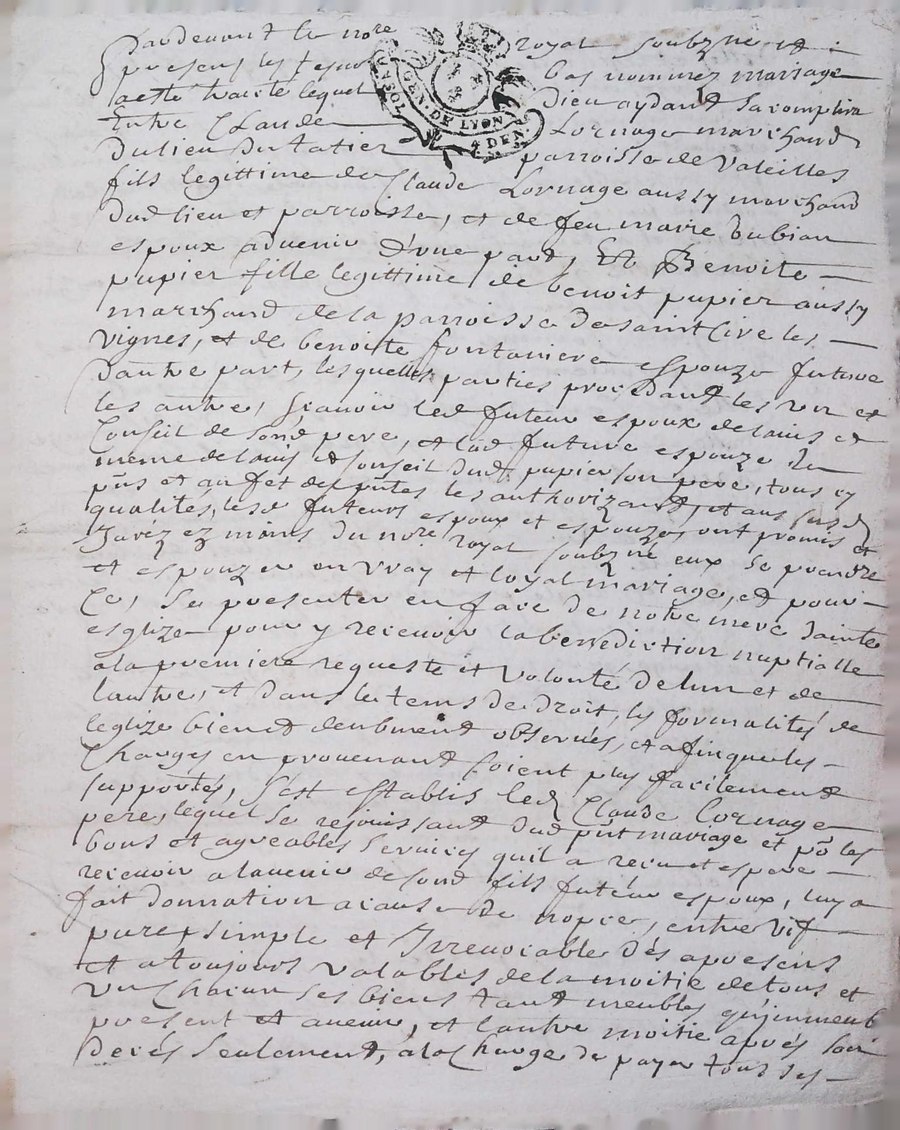 Pardevant le no.re royal soubzne et
presens les tesmo bas nommez mariage
a esté traité lequel Dieu aydant sacomplira
Entre Claude Lornage marchand
GEN. DE LYON
4 DEN.
du lieu du tatier parroisse de valeilles
fils legittime de Claude Lornage aussy marchand
dud lieu et parroisse, et de feu marie Dubian
espoux aduenir d'une part, Et Benoite
pupier fille legittime de benoit pupier aussy
marchand de la parroisse de saint Cire les
vignes, et de benoite fontaniere espouze future
d'autre part, lesquelles parties procedant les vns et
les autre, scauoir led futeur espoux de lauis et
Conseil de sond pere, et lad future espouze du
meme de lauis et Conseil dud pupier son pere, tous cy
pñs et au fet des pñtes les authorizant, et aus susd
qualités, lesd futeurs espoux et espouze ont promis et
Juréz ez mains du no.re royal soubzné eux se prendre
et espouzer en vray et loyal mariage, et pour
Ce, se presenter en face de notre mere sainte
esglize pour y receuoir la benediction nuptialle
a la premiere requeste et volonté de lun et de
lautre, et dans le tems de droit, les formalités de
leglize bien et deubment obserués, et afinque les
Charges en prouenant soient plus facilement
supportés, s'est establis led Claude Lornage
pere, lequel se rejouissant dud pnt mariage et pō les
bons et agreables seruices quil a recu et espere
receuoir a lauenir de sond fils futeur espoux, luy a
fait donnation a cause de nopce, entre vif
pure simple et Irreuocable des apresens
et a toujours valables de la moitie de tous et
vn Chacun ses biens tant meubles qu'jnmeub
present et auenir, et l'autre moitie aprés son
decés seulement, a la Charge de payer tous ses